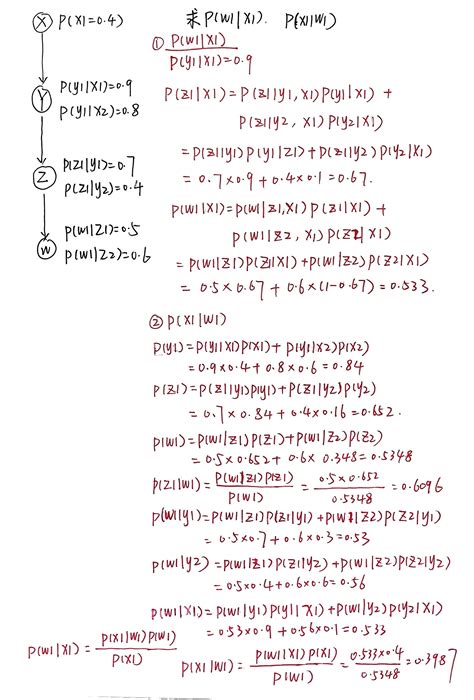 X P(X1=0.4)
求P(W1|X1). P(X1|W1)
Y P(Y1|X1)=0.9
P(Y1|X2)=0.8
Z P(Z1|Y1)=0.7
P(Z1|Y2)=0.4
W P(W1|Z1)=0.5
P(W1|Z2)=0.6
① P(W1|X1)
P(Y1|X1)=0.9
P(Z1|X1)=P(Z1|Y1,X1)P(Y1|X1)+
P(Z1|Y2,X1)P(Y2|X1)
=P(Z1|Y1)P(Y1|Z1)+P(Z1|Y2)P(Y2|X1)
=0.7×0.9+0.4×0.1=0.67.
P(W1|X1)=P(W1|Z1,X1)P(Z1|X1)+
P(W1|Z2,X1)P(Z2|X1)
=P(W1|Z1)P(Z1|X1)+P(W1|Z2)P(Z2|X1)
=0.5×0.67+0.6×(1-0.67)=0.533.
② P(X1|W1)
P(Y1)=P(Y1|X1)P(X1)+P(Y1|X2)P(X2)
=0.9×0.4+0.8×0.6=0.84
P(Z1)=P(Z1|Y1)P(Y1)+P(Z1|Y2)P(Y2)
=0.7×0.84+0.4×0.16=0.652.
P(W1)=P(W1|Z1)P(Z1)+P(W1|Z2)P(Z2)
=0.5×0.652+0.6×0.348=0.5348
P(Z1|W1)=P(W1|Z1)P(Z1)/P(W1)=0.5×0.652/0.5348=0.6096
P(W1|Y1)=P(W1|Z1)P(Z1|Y1)+P(W1|Z2)P(Z2|Y1)
=0.5×0.7+0.6×0.3=0.53
P(W1|Y2)=P(W1|Z1)P(Z1|Y2)+P(W1|Z2)P(Z2|Y2)
=0.5×0.4+0.6×0.6=0.56
P(W1|X1)=P(W1|Y1)P(Y1|X1)+P(W1|Y2)P(Y2|X1)
=0.53×0.9+0.56×0.1=0.533
P(W1|X1)=P(X1|W1)P(W1)/P(X1)
P(X1|W1)=P(W1|X1)P(X1)/P(W1)=0.533×0.4/0.5348=0.3987